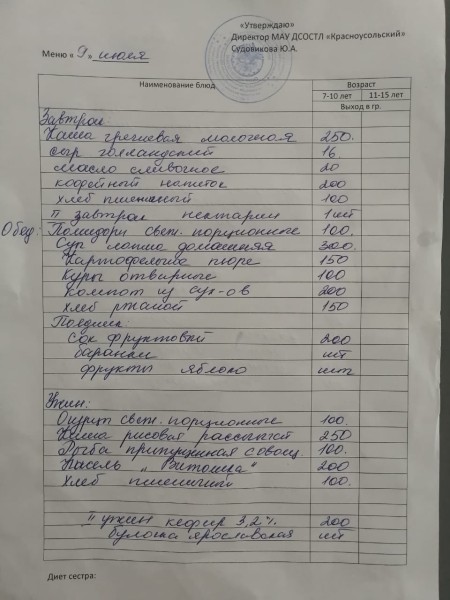 «Утверждаю»
Директор МАУ ДСОСТЛ «Красноусольский»
Судовикова Ю.А.
Меню « 9 » июля
Наименование блюд Возраст
7-10 лет 11-15 лет
Выход в гр.
Завтрак
Каша гречневая молочная 250.
сыр голландский 16.
масло сливочное 20
кофейный напиток 200
хлеб пшеничный 100
II завтрак нектарин 1 шт
Обед: Помидоры свеж. порционные 100.
Суп лапша домашняя 300.
Картофельное пюре 150
Куры отварные 100
Компот из сух-ов 200
хлеб ржаной 150
Полдник:
Сок фруктовый 200
баранки шт
фрукты яблоко шт
Ужин:
Огурцы свеж. порционные 100.
Каша рисовая рассыпчат 250
Рыба припущенная с овощ. 100.
Кисель „Витошка" 200
хлеб пшеничный 100.
II ужин кефир 3,2% 200
булочка ярославская шт
Диет сестра: